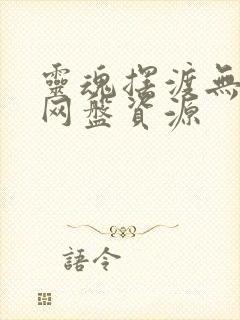 靈魂擺渡無
网盤資源
語令